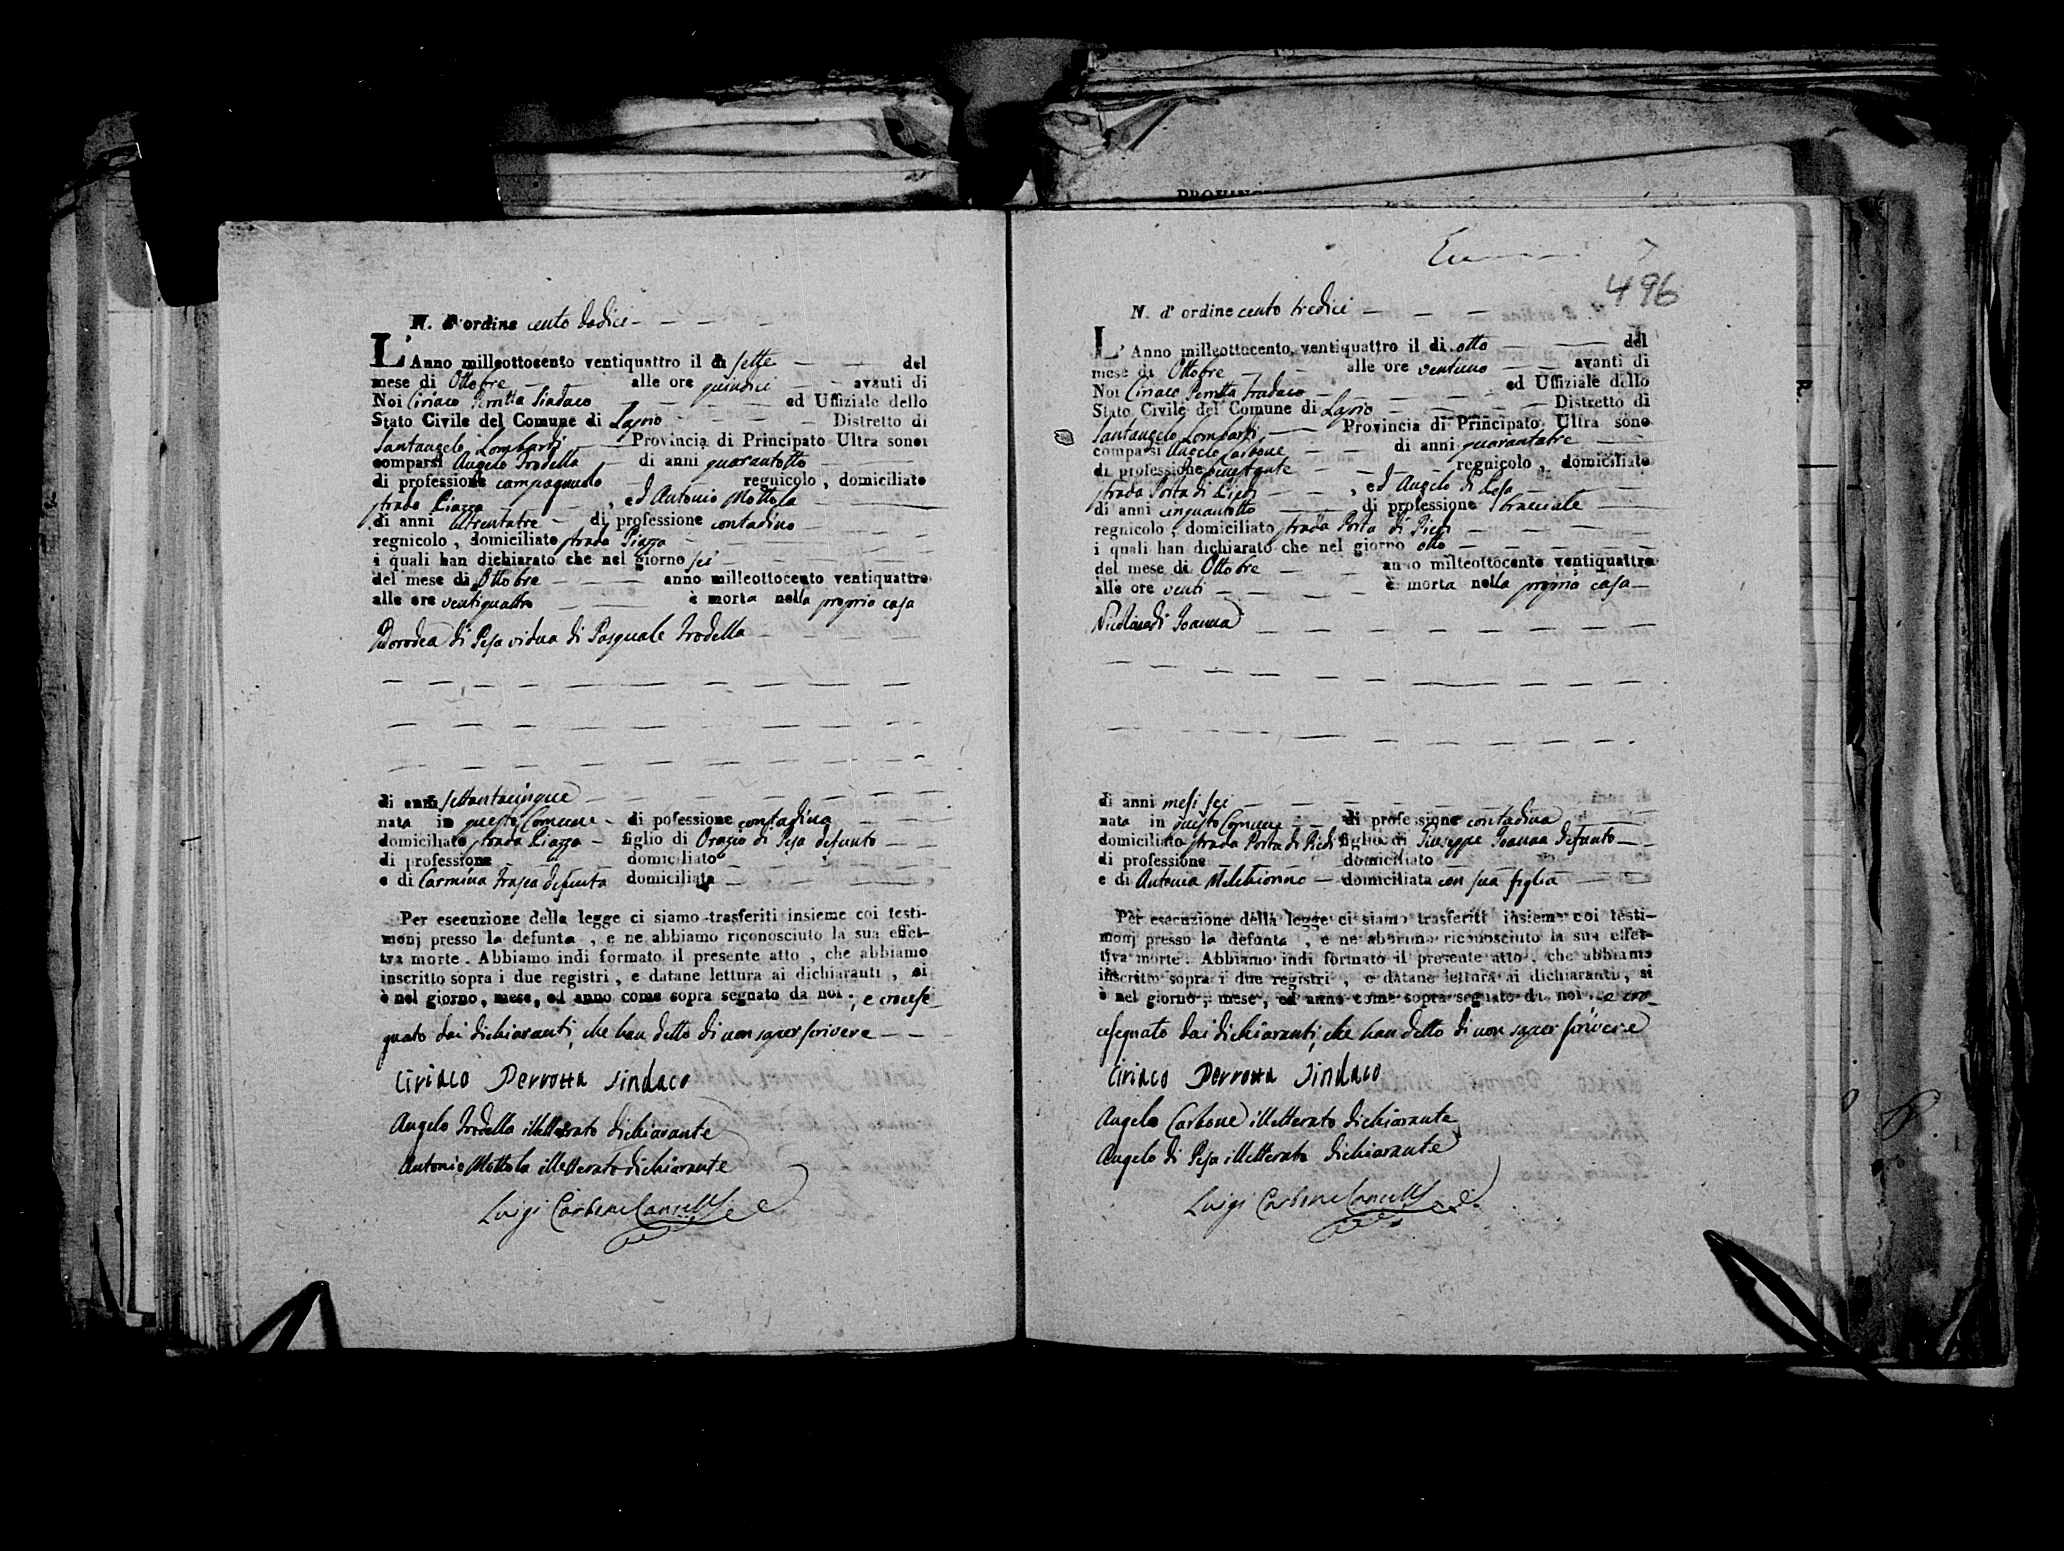 N. d'ordine cento dodici
L'Anno milleottocento ventiquattro il di sette del
mese di Ottobre alle ore quindici avanti di
Noi Ciriaco Perrotta Sindaco ed Uffiziale dello
Stato Civile del Comune di Lapio Distretto di
Santangelo Lombardi Provincia di Principato Ultra sono
comparsi Angelo Trodella di anni quarantotto
di professione campagnuolo regnicolo, domiciliato
strada Piazza, ed Antonio Mottola
di anni trentatre di professione contadino
regnicolo, domiciliato strada Piazza
i quali han dichiarato che nel giorno sei
del mese di Ottobre anno milleottocento ventiquattro
alle ore ventiquattro è morta nella propria casa
Dorodea di Pesa vidua di Pasquale Trodella
di anni settantacinque
nata in questo Comune di pofessione contadina
domiciliato strada Piazza figlio di Orazio di Pesa defunto
di professione domiciliato
e di Carmina defunta domiciliata
Per esecuzione della legge ci siamo trasferiti insieme coi testi-
monj presso la defunta, e ne abbiamo riconosciuto la sua effet-
tva morte. Abbiamo indi formato il presente atto, che abbiamo
inscritto sopra i due registri, e datane lettura ai dichiaranti, si
è nel giorno, mese, ed anno come sopra segnato da noi, e crocese
gnato dai dichiaranti, che han detto di non saper scrivere
Ciriaco Perrotta Sindaco
Angelo Trodella illetterato dichiarante
Antonio Mottola illetterato dichiarante
Luigi Carbone Cancelle
PROVINC
496
N. d'ordine cento tredici
L'Anno milleottocento ventiquattro il di otto del
mese di Ottobre alle ore ventuno avanti di
Noi Ciriaco Perrotta Sindaco ed Uffiziale dello
Stato Civile del Comune di Lapio Distretto di
Santangelo Lombardi Provincia di Principato Ultra sono
comparsi Angelo Carbone di anni quarantatre
di professione regnicolo, domiciliato
strada Porta di Piedi, ed Angelo di Pesa
di anni cinquantotto di professione bracciale
regnicolo, domiciliato strada Porta di Piedi
i quali han dichiarato che nel giorno otto
del mese di Ottobre anno milleottocento ventiquattro
alle ore venti è morta nella propria casa
Nicolina di Joanna
di anni mesi sei
nata in questo Comune di professione contadina
domiciliato strada Porta di Piedi figlio di Giuseppe Joanna defunto
di professione domiciliato
e di Antonia Melchionno domiciliata con sua figlia
Per esecuzione della legge ci siamo trasferiti insieme coi testi-
monj presso la defunta, e ne abbiamo riconosciuto la sua effet-
tiva morte. Abbiamo indi formato il presente atto, che abbiamo
inscritto sopra i due registri, e datane lettura ai dichiaranti, si
è nel giorno, mese, ed anno come sopra segnato da noi, e cro-
cesegnato dai dichiaranti, che han detto di non saper scrivere
Ciriaco Perrotta Sindaco
Angelo Carbone illetterato dichiarante
Angelo di Pesa illetterato dichiarante
Luigi Carbone Cancelle